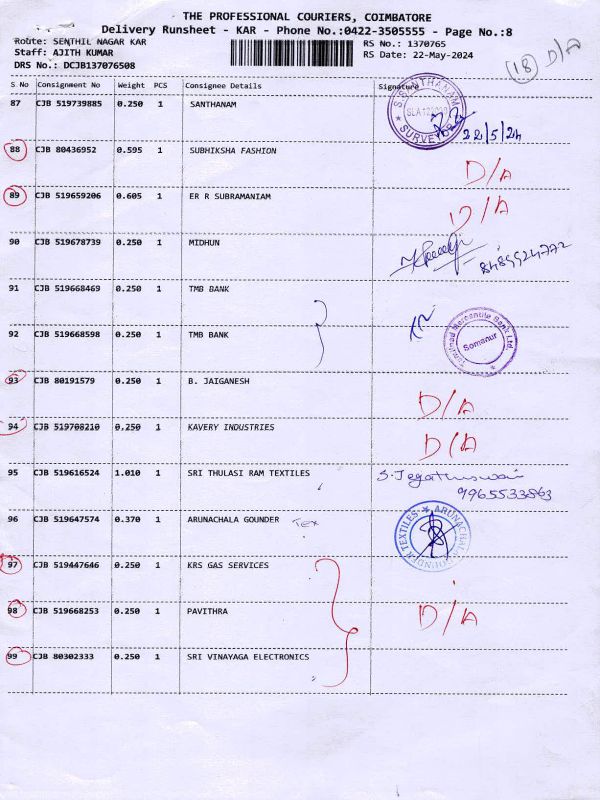 THE PROFESSIONAL COURIERS, COIMBATORE
Delivery Runsheet - KAR - Phone No.:0422-3505555 - Page No.:8
Route: SENTHIL NAGAR KAR RS No.: 1370765
Staff: AJITH KUMAR RS Date: 22-May-2024
DRS No.: DCJB137076508
(18) D/A
S No Consignment No Weight PCS Consignee Details Signature
87 CJB 519739885 0.250 1 SANTHANAM
S.SANTHANAM
SURVEYOR
22/5/24
88 CJB 80436952 0.595 1 SUBHIKSHA FASHION D/A
89 CJB 519659206 0.605 1 ER R SUBRAMANIAM D/A
90 CJB 519678739 0.250 1 MIDHUN 8489924772
91 CJB 519668469 0.250 1 TMB BANK
92 CJB 519668598 0.250 1 TMB BANK
Tamilnad Mercantile Bank Ltd.
Somanur
93 CJB 80191579 0.250 1 B. JAIGANESH D/A
94 CJB 519708210 0.250 1 KAVERY INDUSTRIES D/A
95 CJB 519616524 1.010 1 SRI THULASI RAM TEXTILES S. Jegathuswai
9965533863
96 CJB 519647574 0.370 1 ARUNACHALA GOUNDER Tex
ARUNACHALA GOUNDER TEXTILES
97 CJB 519447646 0.250 1 KRS GAS SERVICES
98 CJB 519668253 0.250 1 PAVITHRA D/A
99 CJB 80302333 0.250 1 SRI VINAYAGA ELECTRONICS